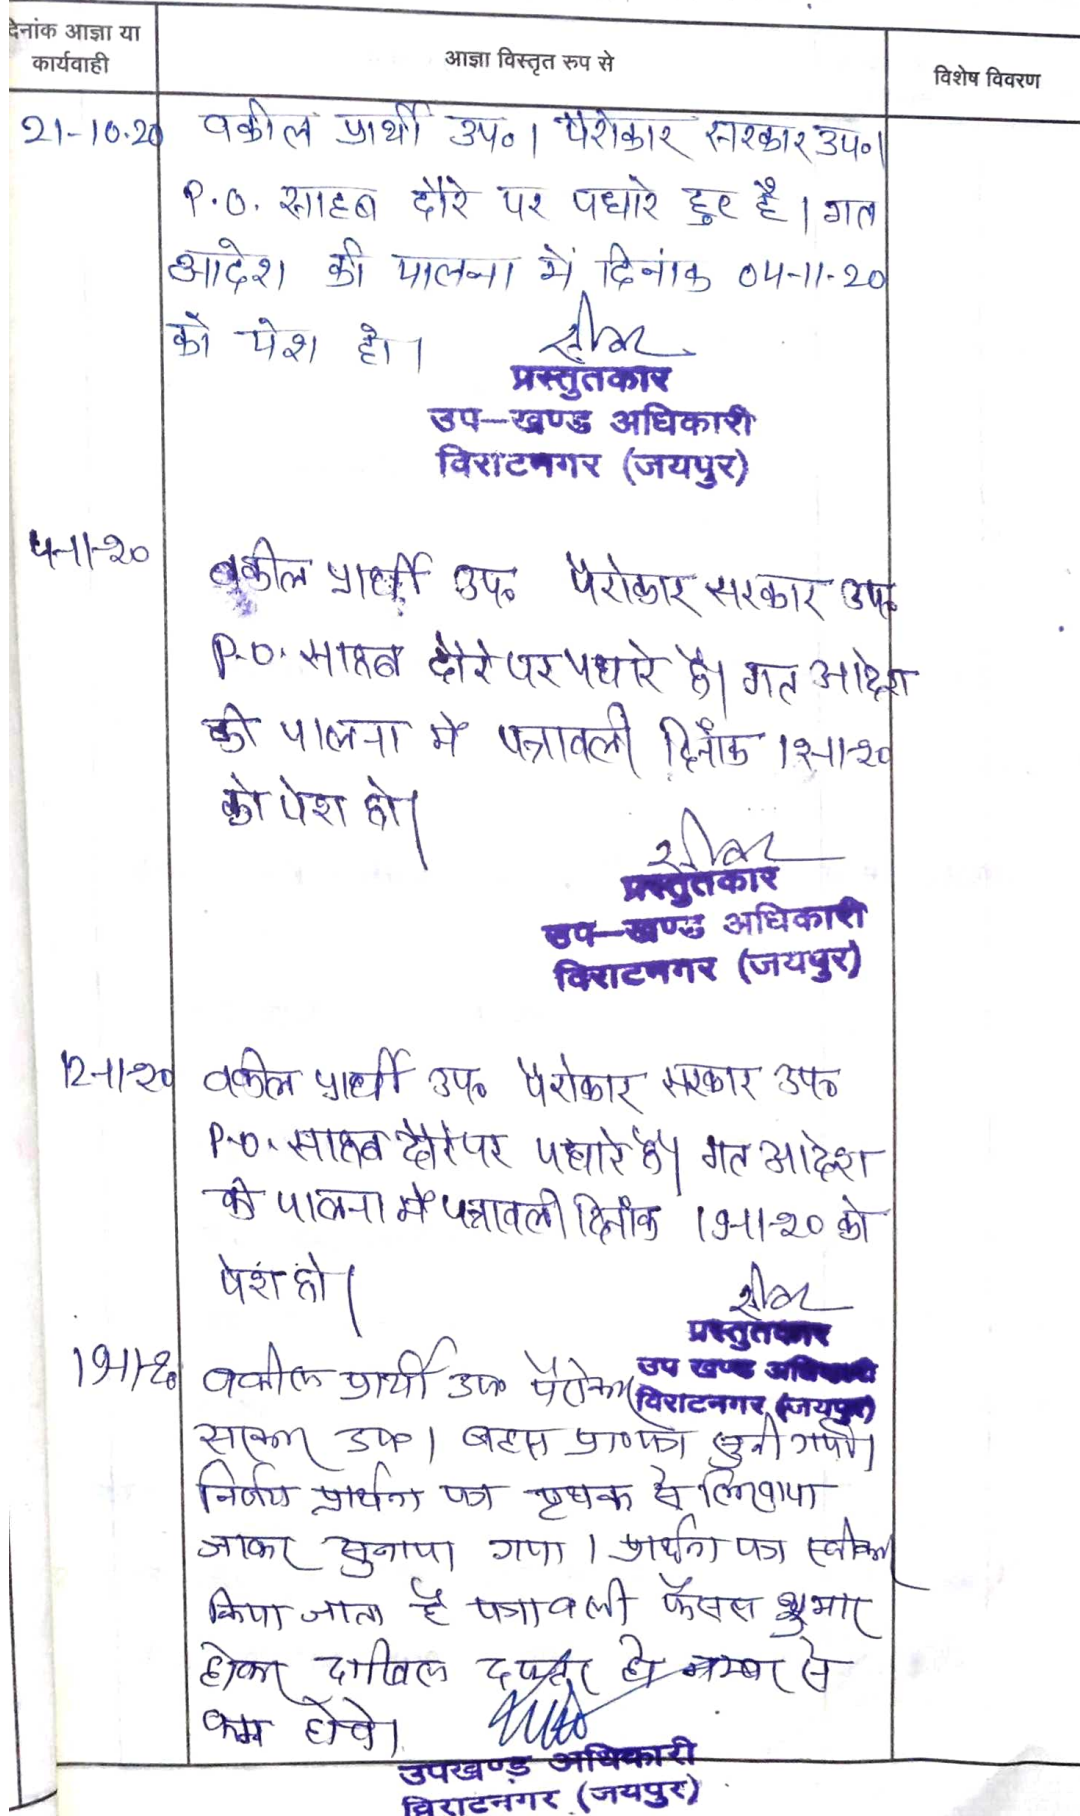 देनांक आज्ञा या
कार्यवाही
आज्ञा विस्तृत रुप से
विशेष विवरण
21-10-20 वकील प्रार्थी उप०। पैरोकार सरकार उप०।
P.O. साहब दौरे पर पधारे हुए है। गत
आदेश की पालना में दिनांक 04-11-20
को पेश हो।
प्रस्तुतकार
उप-खण्ड अधिकारी
विराटनगर (जयपुर)
4-11-20
वकील प्रार्थी उप० पैरोकार सरकार उप०
P.O. साहब दौरे पर पधारे है। गत आदेश
की पालना में पत्रावली दिनाँक 12-11-20
को पेश हो।
प्रस्तुतकार
उप-खण्ड अधिकारी
विराटनगर (जयपुर)
12-11-20 वकील प्रार्थी उप० पैरोकार सरकार उप०
P.O. साहब दौरे पर पधारे है। गत आदेश
की पालना में पत्रावली दिनाँक 19-11-20 को
पेश हो।
प्रस्तुतकार
उप खण्ड अधिकारी
विराटनगर (जयपुर)
19-11-20 वकील प्रार्थी उप० पैरोकार
सरकार उप०। बहस प्रा०पत्र सुनी गयी।
निर्णय प्रार्थना पत्र पृथक से लिखाया
जाकर सुनाया गया। प्रार्थना पत्र स्वीकार
किया जाता है पत्रावली फैसल शुमार
होकर दाखिल दफ्तर हो नम्बर से
कम होवे।
उपखण्ड अधिकारी
विराटनगर (जयपुर)